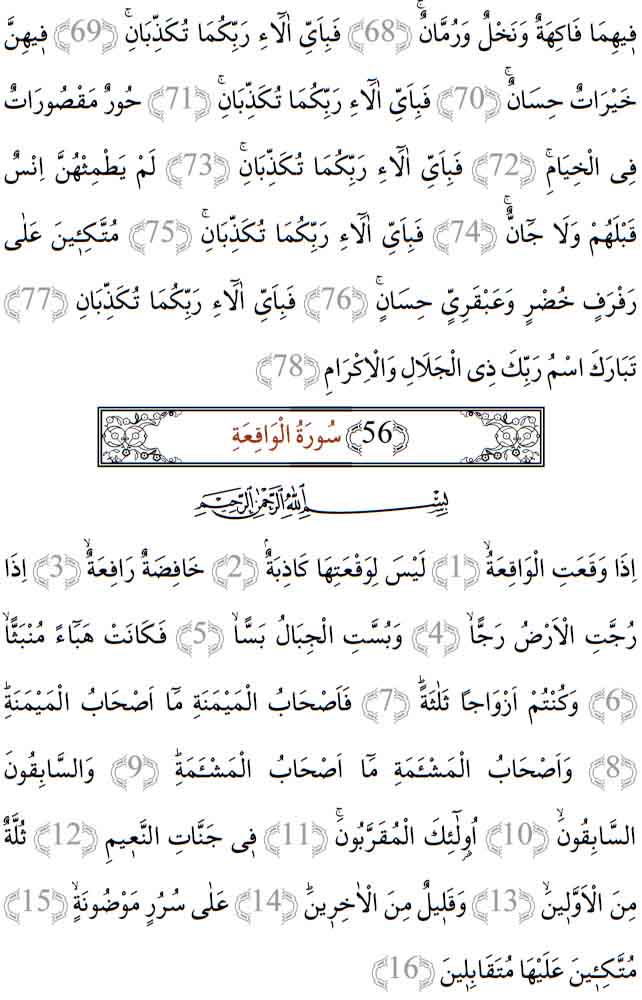 فِيهِمَا فَاكِهَةٌ وَنَخْلٌ وَرُمَّانٌۚ ﴿68﴾ فَبِاَيِّ اٰلَٓاءِ رَبِّكُمَا تُكَذِّبَانِۚ ﴿69﴾ فٖيهِنَّ
خَيْرَاتٌ حِسَانٌۚ ﴿70﴾ فَبِاَيِّ اٰلَٓاءِ رَبِّكُمَا تُكَذِّبَانِۚ ﴿71﴾ حُورٌ مَقْصُورَاتٌ
فِى الْخِيَامِۚ ﴿72﴾ فَبِاَيِّ اٰلَٓاءِ رَبِّكُمَا تُكَذِّبَانِۚ ﴿73﴾ لَمْ يَطْمِثْهُنَّ اِنْسٌ
قَبْلَهُمْ وَلَا جَٓانٌّۚ ﴿74﴾ فَبِاَيِّ اٰلَٓاءِ رَبِّكُمَا تُكَذِّبَانِۚ ﴿75﴾ مُتَّكِـٖٔينَ عَلٰى
رَفْرَفٍ خُضْرٍ وَعَبْقَرِيٍّ حِسَانٍۚ ﴿76﴾ فَبِاَيِّ اٰلَٓاءِ رَبِّكُمَا تُكَذِّبَانِ ﴿77﴾
تَبَارَكَ اسْمُ رَبِّكَ ذِى الْجَلَالِ وَالْاِكْرَامِ ﴿78﴾
﴿56﴾ سُورَةُ الْوَاقِعَةِ
بِسْمِ اللّٰهِ الرَّحْمٰنِ الرَّحٖيمِ
اِذَا وَقَعَتِ الْوَاقِعَةُۙ ﴿1﴾ لَيْسَ لِوَقْعَتِهَا كَاذِبَةٌۘ ﴿2﴾ خَافِضَةٌ رَافِعَةٌۙ ﴿3﴾ اِذَا
رُجَّتِ الْاَرْضُ رَجًّاۙ ﴿4﴾ وَبُسَّتِ الْجِبَالُ بَسًّاۙ ﴿5﴾ فَكَانَتْ هَبَٓاءً مُنْبَثًّاۙ
﴿6﴾ وَكُنْتُمْ اَزْوَاجًا ثَلٰثَةًؕ ﴿7﴾ فَاَصْحَابُ الْمَيْمَنَةِ مَٓا اَصْحَابُ الْمَيْمَنَةِؕ
﴿8﴾ وَاَصْحَابُ الْمَشْـَٔمَةِ مَٓا اَصْحَابُ الْمَشْـَٔمَةِؕ ﴿9﴾ وَالسَّابِقُونَ
السَّابِقُونَۙ ﴿10﴾ اُو۬لٰٓئِكَ الْمُقَرَّبُونَۚ ﴿11﴾ فٖى جَنَّاتِ النَّعٖيمِ ﴿12﴾ ثُلَّةٌ
مِنَ الْاَوَّلٖينَۙ ﴿13﴾ وَقَلٖيلٌ مِنَ الْاٰخِرٖينَؕ ﴿14﴾ عَلٰى سُرُرٍ مَوْضُونَةٍۙ ﴿15﴾
مُتَّكِـٖٔينَ عَلَيْهَا مُتَقَابِلٖينَ ﴿16﴾